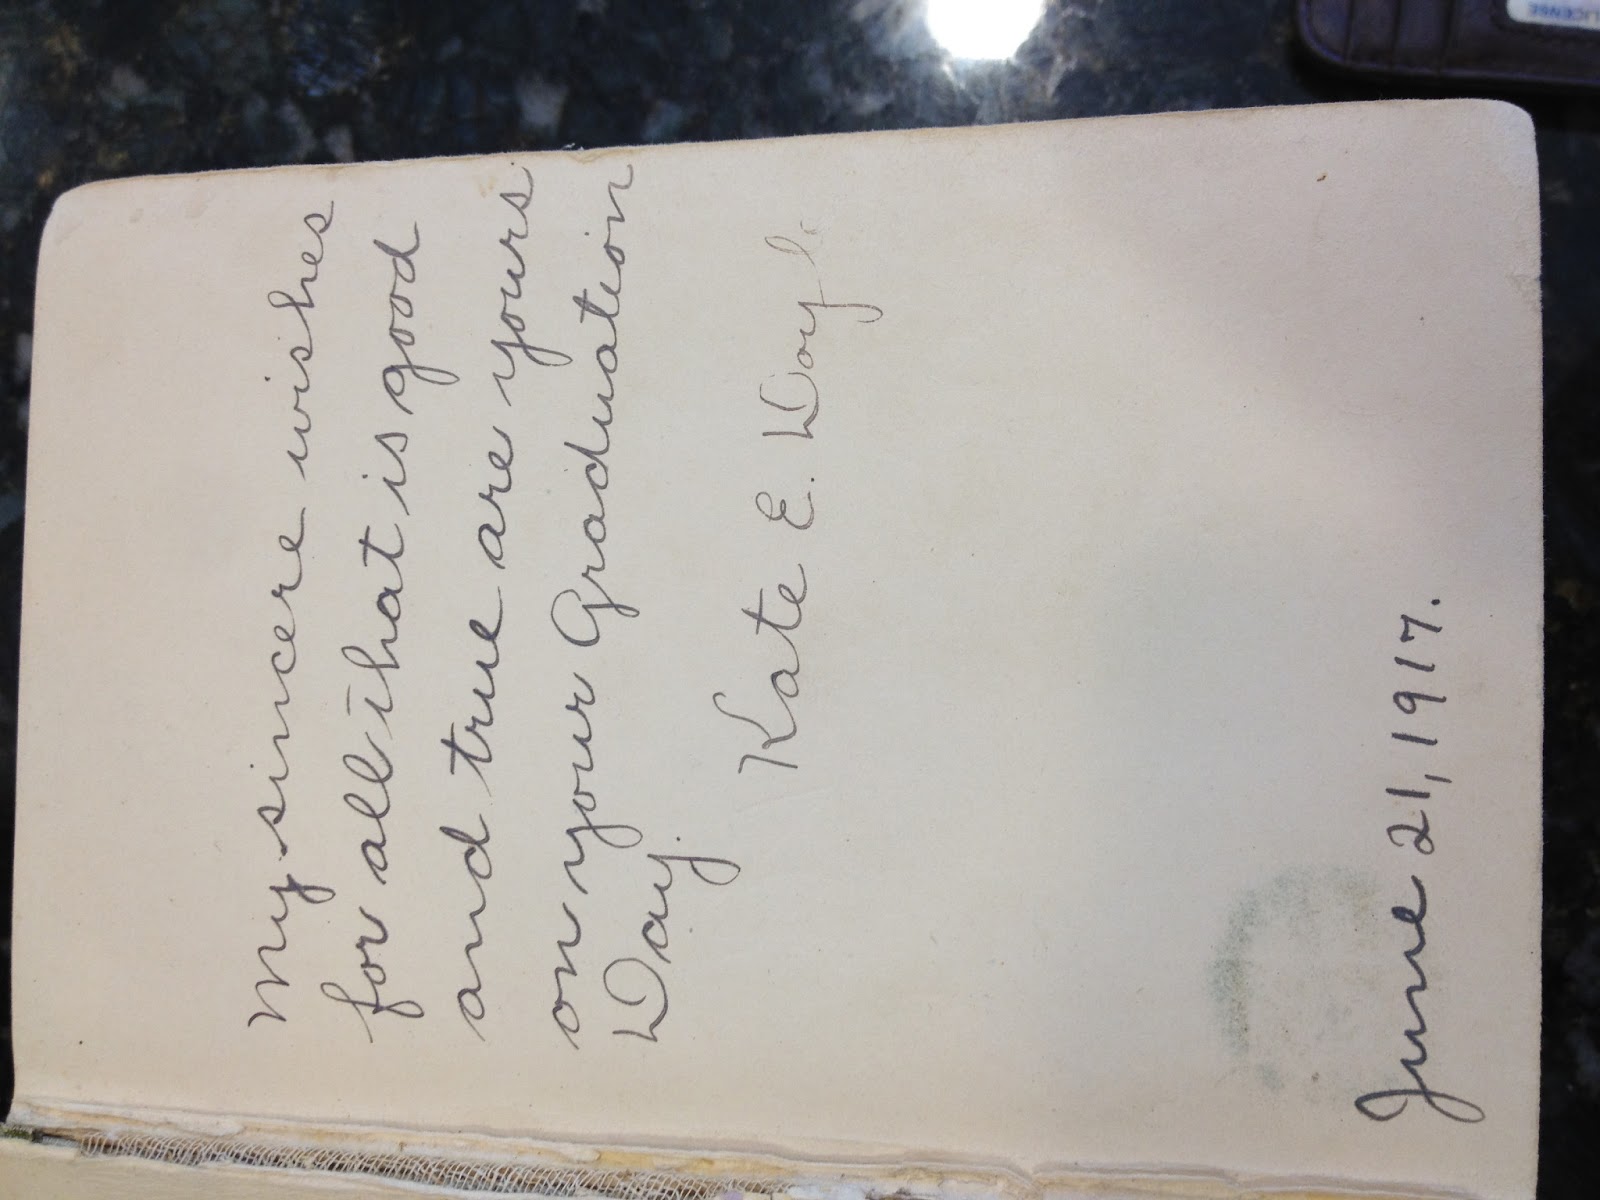 My sincere wishes
for all that is good
and true are yours
on your Graduation
Day.
Kate E.
June 21, 1917.
LICENSE